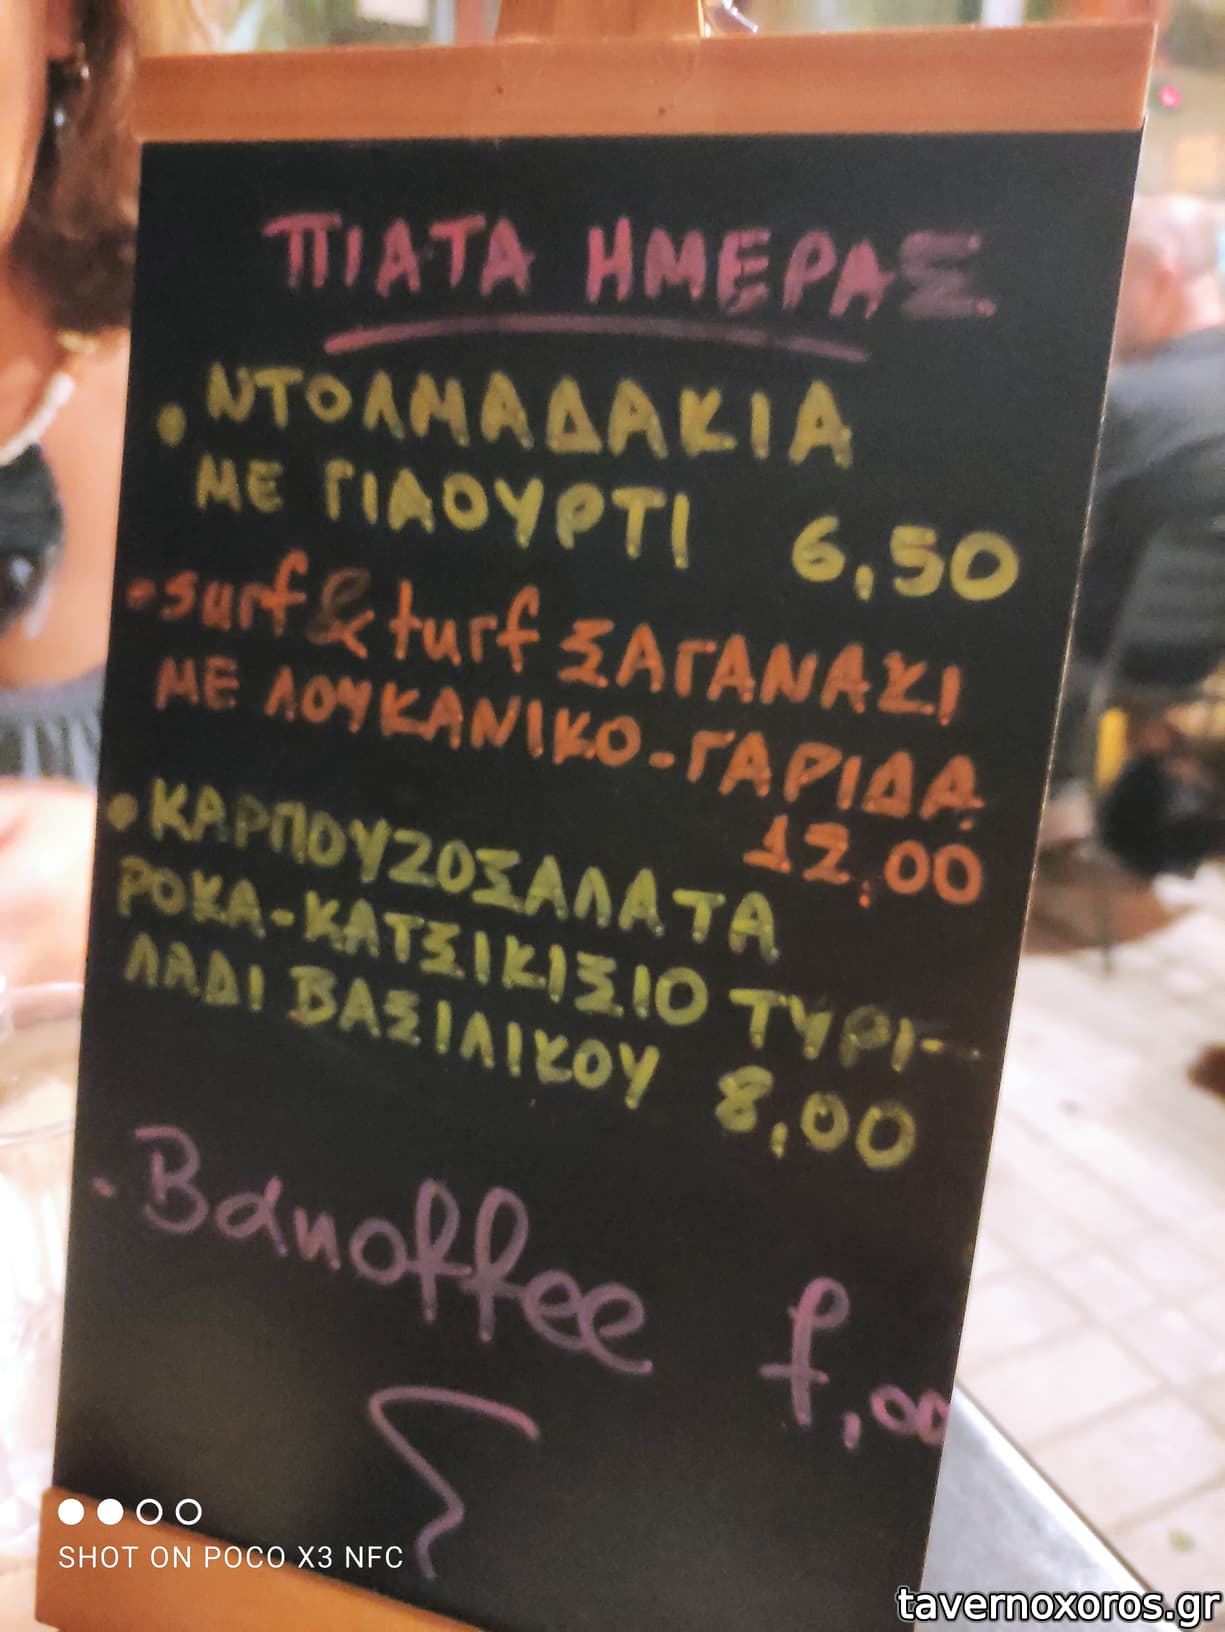 ΠΙΑΤΑ ΗΜΕΡΑΣ
• ΝΤΟΛΜΑΔΑΚΙΑ
ΜΕ ΓΙΑΟΥΡΤΙ 6,50
• surf & turf ΣΑΓΑΝΑΚΙ
ΜΕ ΛΟΥΚΑΝΙΚΟ-ΓΑΡΙΔΑ
12,00
• ΚΑΡΠΟΥΖΟΣΑΛΑΤΑ
ΡΟΚΑ-ΚΑΤΣΙΚΙΣΙΟ ΤΥΡΙ-
ΛΑΔΙ ΒΑΣΙΛΙΚΟΥ 8,00
• Banoffee 7,00
SHOT ON POCO X3 NFC
tavernoxoros.gr